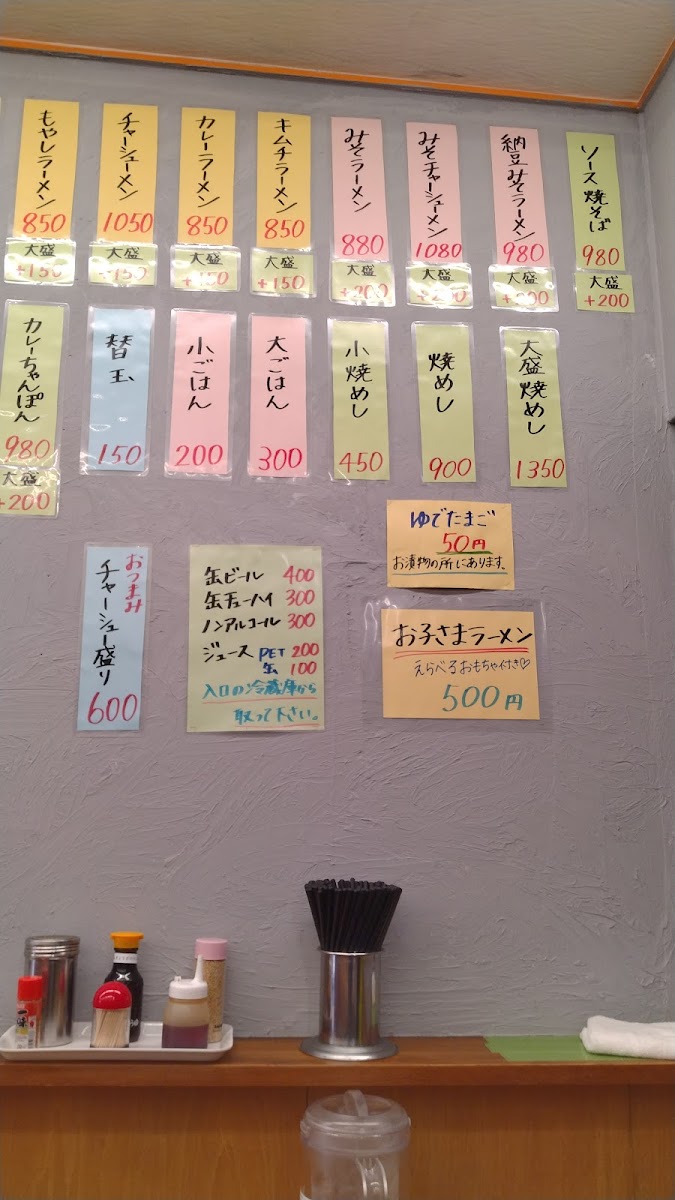 もやしラーメン
850
大盛
+150
チャーシューメン
1050
大盛
+150
カレーラーメン
850
大盛
+150
キムチラーメン
850
大盛
+150
みそラーメン
880
大盛
+200
みそチャーシューメン
1080
大盛
+200
納豆みそラーメン
980
大盛
+200
ソース焼そば
980
大盛
+200
カレーちゃんぽん
980
大盛
+200
替玉
150
小ごはん
200
大ごはん
300
小焼めし
450
焼めし
900
大盛焼めし
1350
ゆでたまご
50円
お漬物の所にあります。
おつまみ
チャーシュー盛り
600
缶ビール 400
缶チューハイ 300
ノンアルコール 300
ジュース PET 200
缶 100
入口の冷蔵庫から
取って下さい。
お子さまラーメン
えらべるおもちゃ付き♡
500円
一味